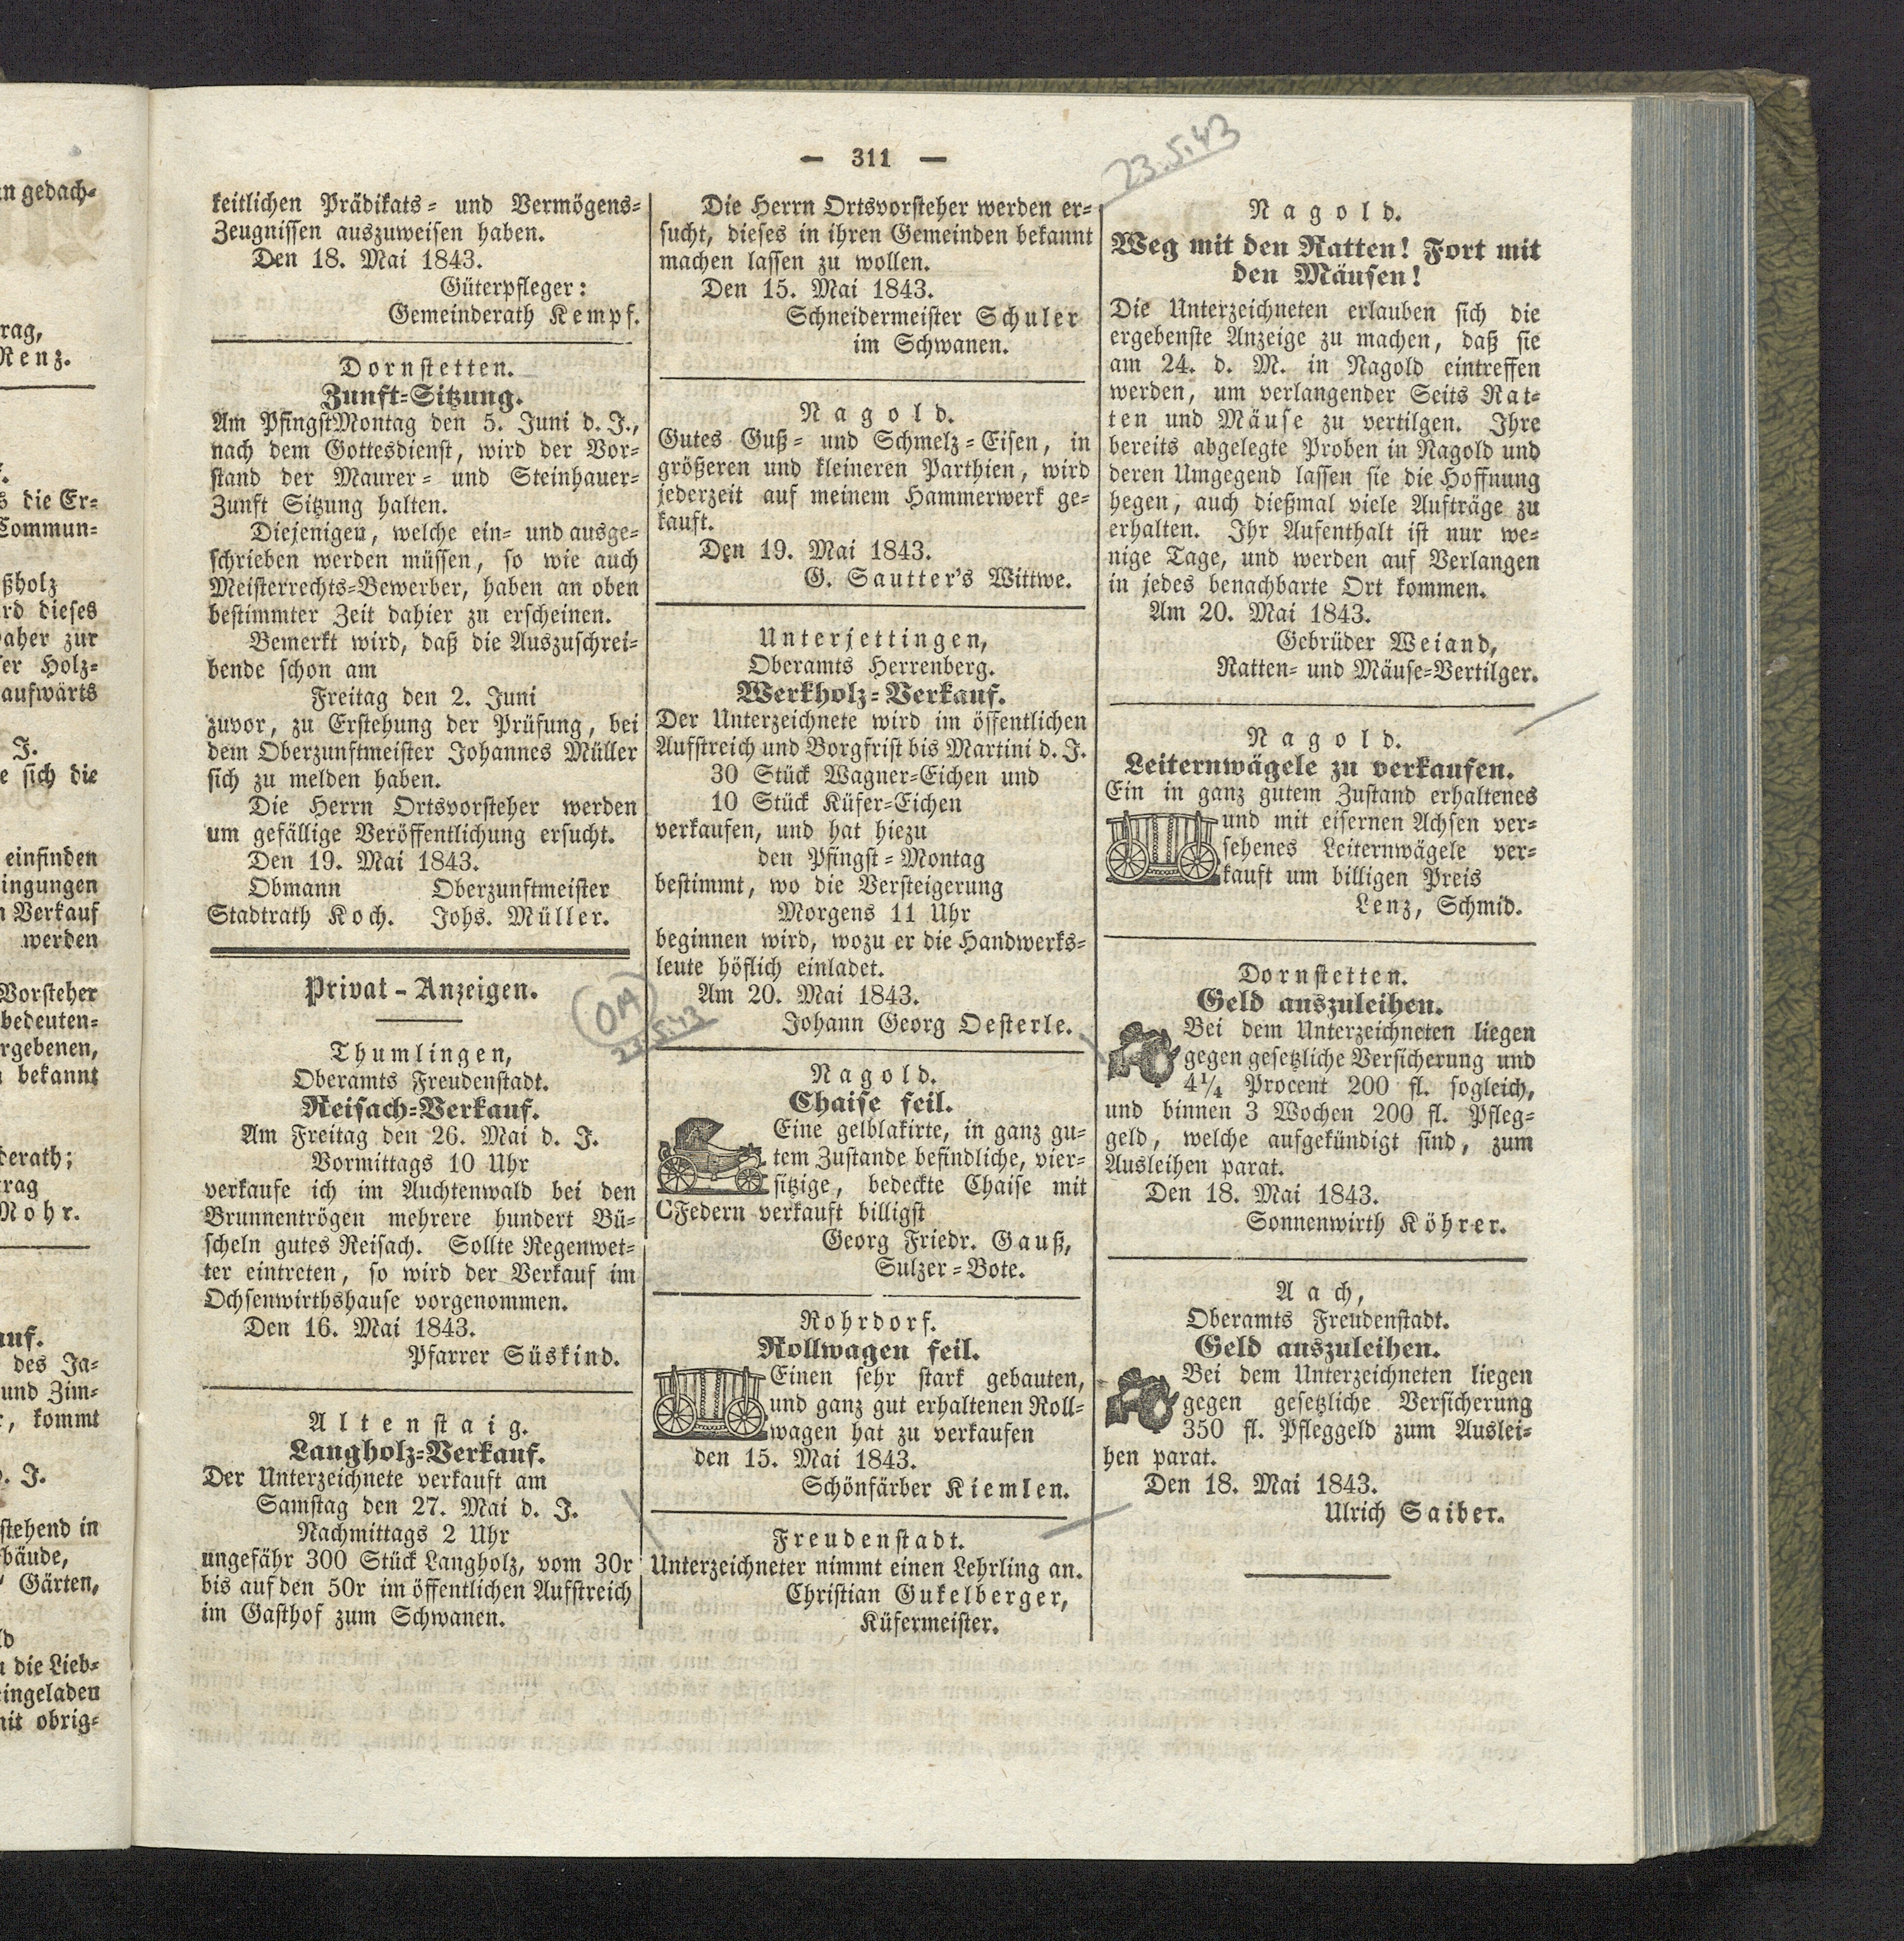 in gedach-
rag,
Renz.
s die Er-
Commun-
ßholz
rd dieses
daher zur
ser Holz-
aufwärts
J.
e sich die
einfinden
ingungen
n Verkauf
werden
Vorsteher
bedeuten-
rgebenen,
bekannt
derath;
trag
Mohr.
auf.
des Ja-
und Zim-
, kommt
. J.
stehend in
bäude,
Gärten,
ld
die Lieb-
eingeladen
mit obrig-
— 311 —
23.5.43
keitlichen Prädikats- und Vermögens-
Zeugnissen auszuweisen haben.
Den 18. Mai 1843.
Güterpfleger:
Gemeinderath Kempf.
Dornstetten.
Zunft-Sitzung.
Am PfingstMontag den 5. Juni d. J.,
nach dem Gottesdienst, wird der Vor-
stand der Maurer- und Steinhauer-
Zunft Sitzung halten.
Diejenigen, welche ein- und ausge-
schrieben werden müssen, so wie auch
Meisterrechts-Bewerber, haben an oben
bestimmter Zeit dahier zu erscheinen.
Bemerkt wird, daß die Auszuschrei-
bende schon am
Freitag den 2. Juni
zuvor, zu Erstehung der Prüfung, bei
dem Oberzunftmeister Johannes Müller
sich zu melden haben.
Die Herrn Ortsvorsteher werden
um gefällige Veröffentlichung ersucht.
Den 19. Mai 1843.
Obmann Oberzunftmeister
Stadtrath Koch. Johs. Müller.
Privat-Anzeigen.
OA
23.5.43
Thumlingen,
Oberamts Freudenstadt.
Reisach-Verkauf.
Am Freitag den 26. Mai d. J.
Vormittags 10 Uhr
verkaufe ich im Auchtenwald bei den
Brunnentrögen mehrere hundert Bü-
scheln gutes Reisach. Sollte Regenwet-
ter eintreten, so wird der Verkauf im
Ochsenwirthshause vorgenommen.
Den 16. Mai 1843.
Pfarrer Süskind.
Altenstaig.
Langholz-Verkauf.
Der Unterzeichnete verkauft am
Samstag den 27. Mai d. J.
Nachmittags 2 Uhr
ungefähr 300 Stück Langholz, vom 30r
bis auf den 50r im öffentlichen Aufstreich
im Gasthof zum Schwanen.
Die Herrn Ortsvorsteher werden er-
sucht, dieses in ihren Gemeinden bekannt
machen lassen zu wollen.
Den 15. Mai 1843.
Schneidermeister Schuler
im Schwanen.
Nagold.
Gutes Guß- und Schmelz-Eisen, in
größeren und kleineren Parthien, wird
jederzeit auf meinem Hammerwerk ge-
kauft.
Den 19. Mai 1843.
G. Sautter's Wittwe.
Unterjettingen,
Oberamts Herrenberg.
Werkholz-Verkauf.
Der Unterzeichnete wird im öffentlichen
Aufstreich und Borgfrist bis Martini d. J.
30 Stück Wagner-Eichen und
10 Stück Küfer-Eichen
verkaufen, und hat hiezu
den Pfingst-Montag
bestimmt, wo die Versteigerung
Morgens 11 Uhr
beginnen wird, wozu er die Handwerks-
leute höflich einladet.
Am 20. Mai 1843.
Johann Georg Oesterle.
Nagold.
Chaise feil.
Eine gelblakirte, in ganz gu-
tem Zustande befindliche, vier-
sitzige, bedeckte Chaise mit
CFedern verkauft billigst
Georg Friedr. Gauß,
Sulzer-Bote.
Rohrdorf.
Rollwagen feil.
Einen sehr stark gebauten,
und ganz gut erhaltenen Roll-
wagen hat zu verkaufen
den 15. Mai 1843.
Schönfärber Kiemlen.
Freudenstadt.
Unterzeichneter nimmt einen Lehrling an.
Christian Gukelberger,
Küfermeister.
Nagold.
Weg mit den Ratten! Fort mit
den Mäusen!
Die Unterzeichneten erlauben sich die
ergebenste Anzeige zu machen, daß sie
am 24. d. M. in Nagold eintreffen
werden, um verlangender Seits Rat-
ten und Mäuse zu vertilgen. Ihre
bereits abgelegte Proben in Nagold und
deren Umgegend lassen sie die Hoffnung
hegen, auch dießmal viele Aufträge zu
erhalten. Ihr Aufenthalt ist nur we-
nige Tage, und werden auf Verlangen
in jedes benachbarte Ort kommen.
Am 20. Mai 1843.
Gebrüder Weiand,
Ratten- und Mäuse-Vertilger.
Nagold.
Leiternwägele zu verkaufen.
Ein in ganz gutem Zustand erhaltenes
und mit eisernen Achsen ver-
sehenes Leiternwägele ver-
kauft um billigen Preis
Lenz, Schmid.
Dornstetten.
Geld auszuleihen.
Bei dem Unterzeichneten liegen
gegen gesetzliche Versicherung und
4¼ Procent 200 fl. sogleich,
und binnen 3 Wochen 200 fl. Pfleg-
geld, welche aufgekündigt sind, zum
Ausleihen parat.
Den 18. Mai 1843.
Sonnenwirth Köhrer.
Aach,
Oberamts Freudenstadt.
Geld auszuleihen.
Bei dem Unterzeichneten liegen
gegen gesetzliche Versicherung
350 fl. Pfleggeld zum Auslei-
hen parat.
Den 18. Mai 1843.
Ulrich Saiber.